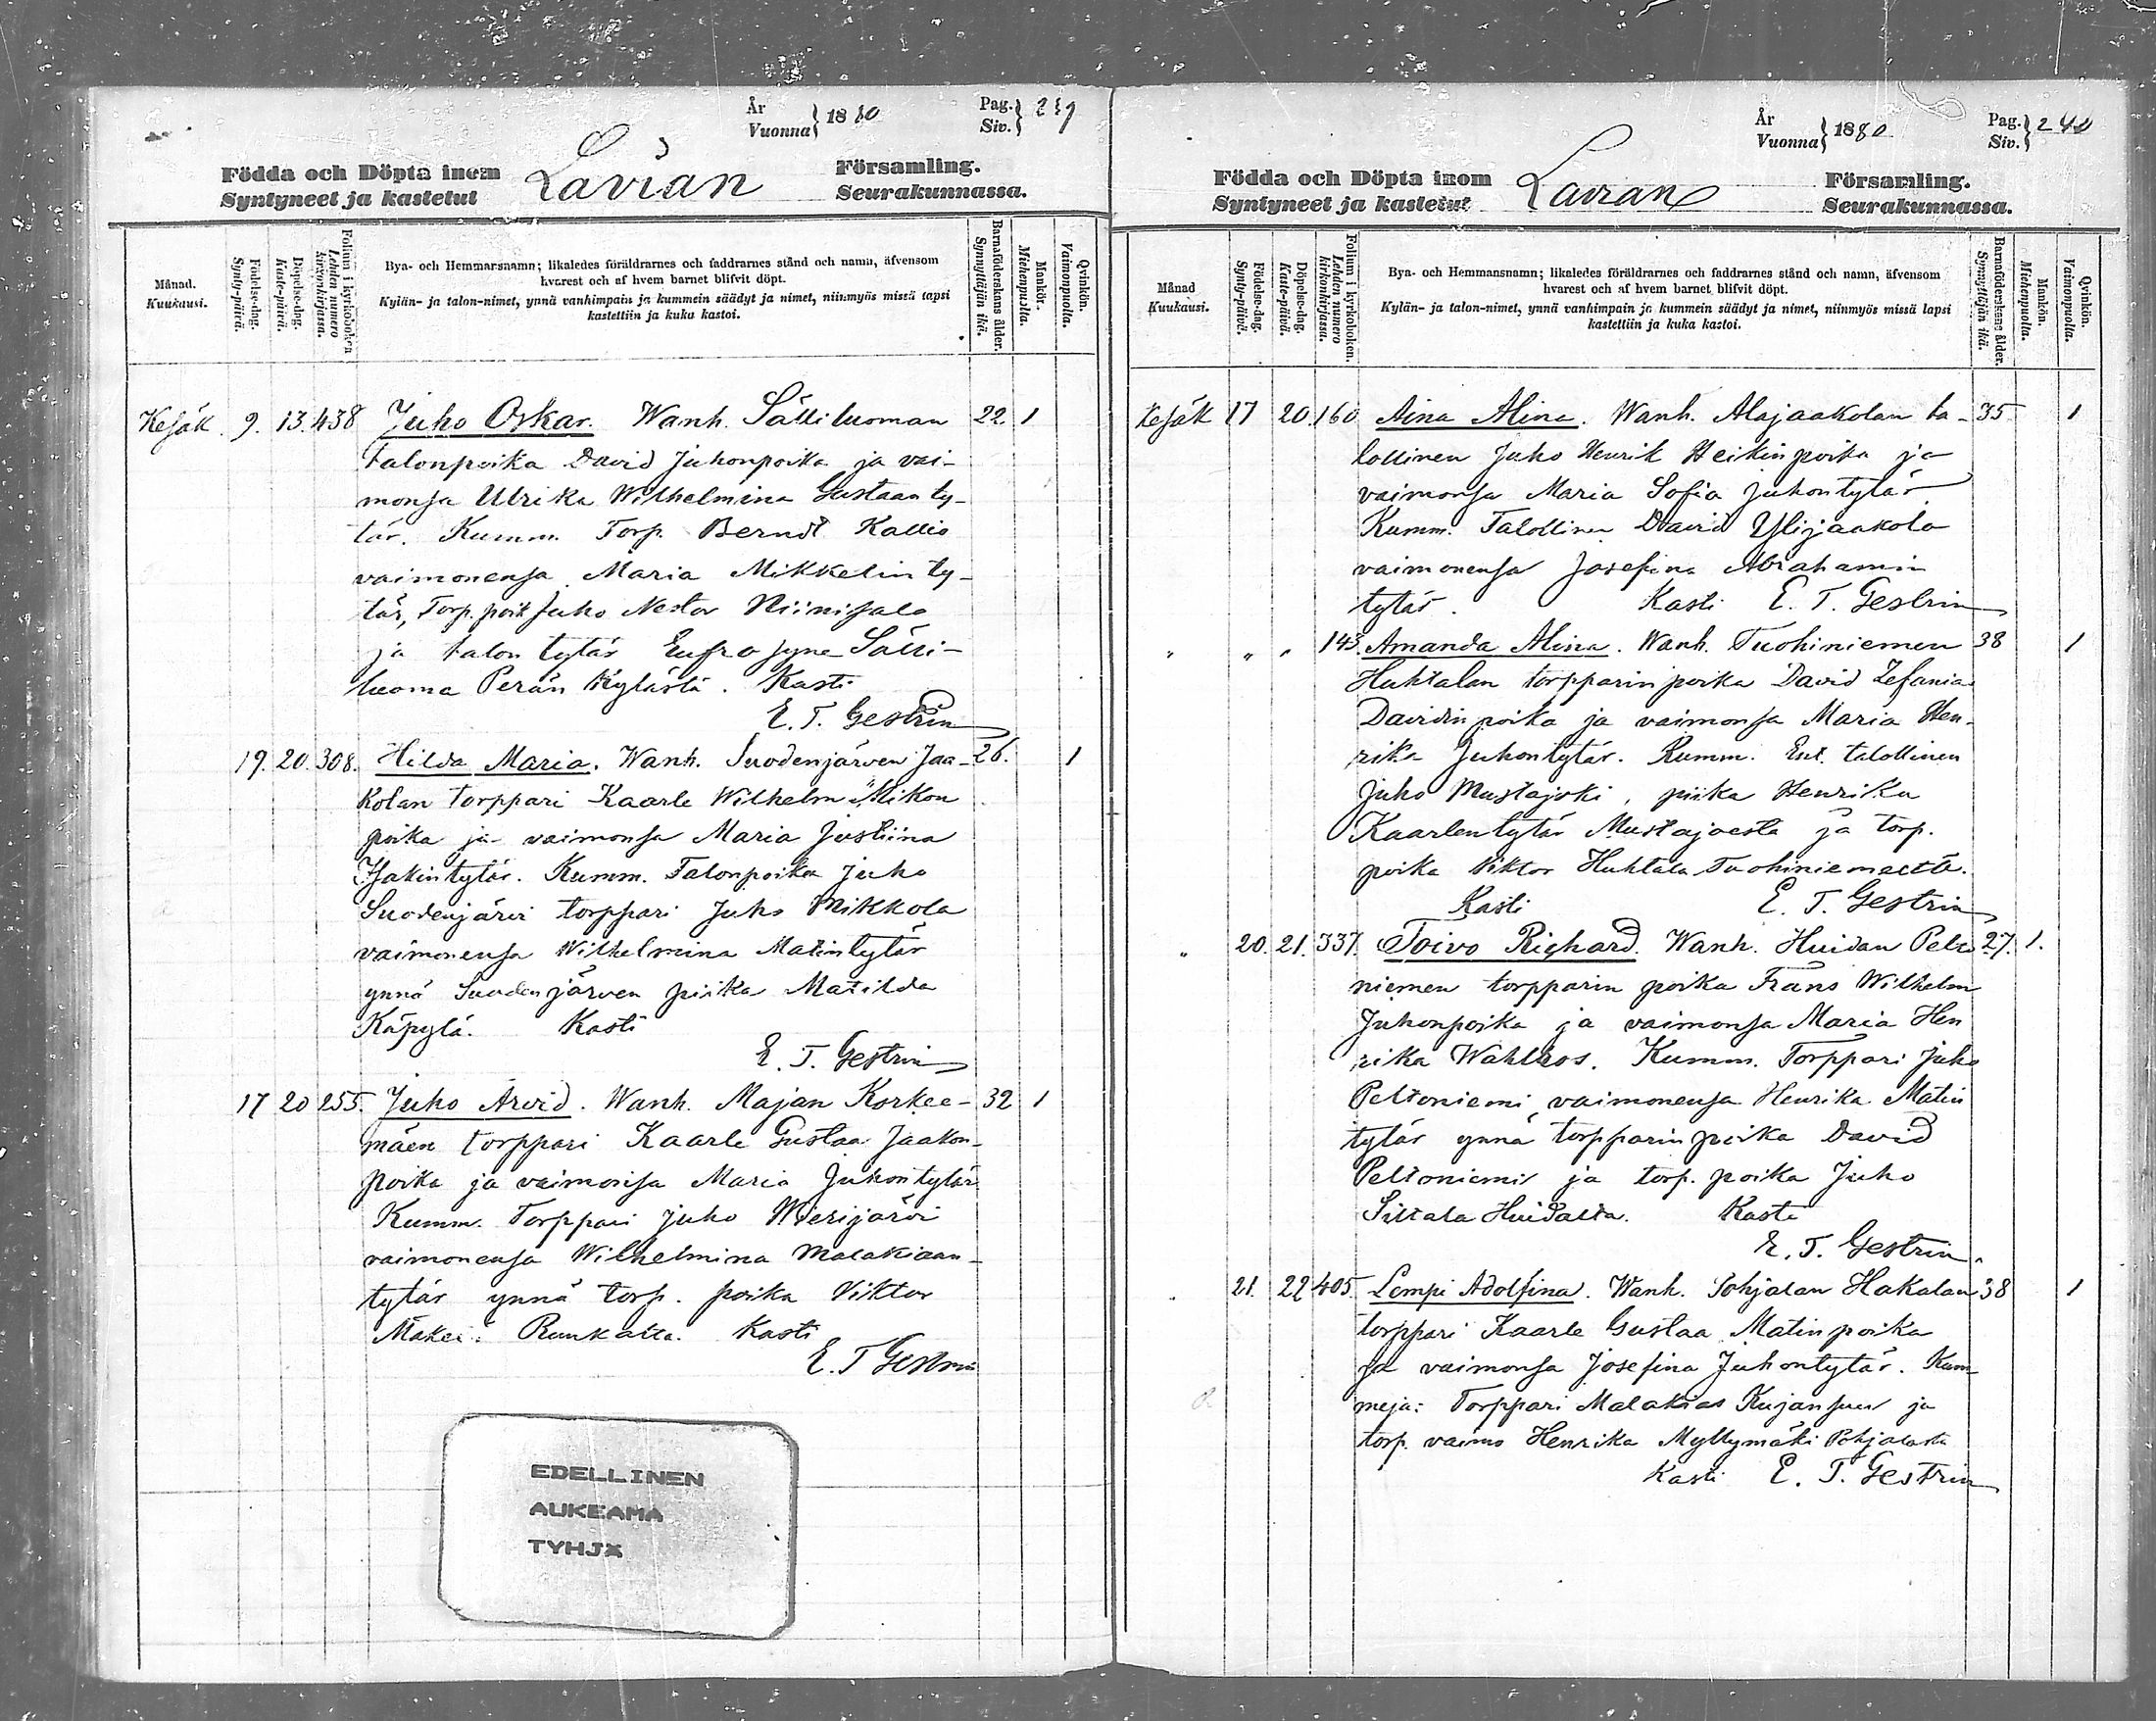 År
Vuonna } 1880
Pag.
Siv. } 239
Födda och Döpta inom
Syntyneet ja kastetut
Lavian
Församling.
Seurakunnassa.
Månad.
Kuukausi.
Födelse-dag.
Synty-päivä.
Döpelse-dag.
Kaste-päivä.
Folium i kyrkoboken
Lehden numero kirkonkirjassa.
Bya- och Hemmansnamn; likaledes föräldrarnes och faddrarnes stånd och namn, äfvensom
hvarest och af hvem barnet blifvit döpt.
Kylän- ja talon-nimet, ynnä vanhimpain ja kummein säädyt ja nimet, niinmyös missä lapsi
kastettiin ja kuka kastoi.
Barnaföderskans ålder.
Synnyttäjän ikä.
Mankön.
Miehenpuolta.
Qvinkön.
Vaimonpuolta.
Kesäk. 9. 13. 438 Juho Oskar. Wanh. Sälliluoman 22. 1
talonpoika David Juhonpoika ja vai-
monsa Ulrika Wilhelmina Gustaanty-
tär. Kumm. Torp. Berndt Kallio
vaimonensa Maria Mikkelinty-
tär, Torp. poik Juho Nestor Niinisalo
ja talon tytär Eufrosyne Sälli-
luoma Perän Kylästä. Kasti
E. T. Gestrin
19. 20. 308. Hilda Maria. Wanh. Suodenjärven Jaa- 26. 1
kolan torppari Kaarle Wilhelm Mikon
poika ja vaimonsa Maria Justiina
Isakintytär. Kumm. Talonpoika Juho
Suodenjärvi torppari Juho Mikkola
vaimonensa Wilhelmina Matintytär
ynnä Suodenjärven piika Matilda
Käpylä. Kasti
E. T. Gestrin
17 20 255. Juho Arvid. Wanh. Majan Korkee- 32 1
mäen torppari Kaarle Gustaa Jaakon-
poika ja vaimonsa Maria Juhontytär
Kumm. Torppari Juho Merijärvi
vaimonensa Wilhelmina Malakiaan-
tytär ynnä torp. poika Viktor
Kasti
E. T Gestrin
EDELLINEN
AUKEAMA
TYHJÄ
År
Vuonna } 1880
Pag.
Siv. } 240
Födda och Döpta inom
Syntyneet ja kastetut
Lavian
Församling.
Seurakunnassa.
Månad
Kuukausi.
Födelse-dag.
Synty-päivä.
Döpelse-dag.
Kaste-päivä.
Folium i kyrkoboken.
Lehden numero kirkonkirjassa.
Bya- och Hemmansnamn; likaledes föräldrarnes och faddrarnes stånd och namn, äfvensom
hvarest och af hvem barnet blifvit döpt.
Kylän- ja talon-nimet, ynnä vanhimpain ja kummein säädyt ja nimet, niinmyös missä lapsi
kastettiin ja kuka kastoi.
Barnaföderskans ålder.
Synnyttäjän ikä.
Mankön.
Miehenpuolta.
Qvinkön.
Vaimonpuolta.
Kesäk 17 20. 160 Aina Alina. Wanh. Alajaakolan ta- 35 1
lollinen Juho Henrik Heikinpoika ja
vaimonsa Maria Sofia Juhontytär.
Kumm. Talollinen David Ylijaakola
vaimonensa Josefina Abrahamin
tytär. Kasti E. T. Gestrin
" " " 143. Amanda Alina. Wanh. Tuohiniemen 38 1
Huhtalan torpparin poika David Zefania
Davidin poika ja vaimonsa Maria Hen-
rika Juhontytär. Kumm. Ent. talollinen
Juho Mustajoki, piika Henrika
Kaarlentytär Mustajoesta ja torp.
poika Viktor Huhtala Tuohiniemeltä.
Kasti E. T. Gestrin
" 20. 21. 337. Toivo Richard. Wanh. Huidan Pelto 27. 1.
niemen torpparin poika Frans Wilhelm
Juhonpoika ja vaimonsa Maria Hen
rika Wahlros. Kumm. Torppari Juho
Peltoniemi, vaimonensa Henrika Matin
tytär ynnä torpparin poika David
Peltoniemi ja torp. poika Juho
Siltala Huidalta. Kasti
E. T. Gestrin.
" 21. 22 405. Lempi Adolfina. Wanh. Pohjalan Hakalan 38 1
torppari Kaarle Gustaa Matinpoika
ja vaimonsa Josefina Juhontytär. Kum-
meja: Torppari Malakias Kujansuu ja
torp. vaimo Henrika Myllymäki Pohjalasta
Kasti E. T. Gestrin